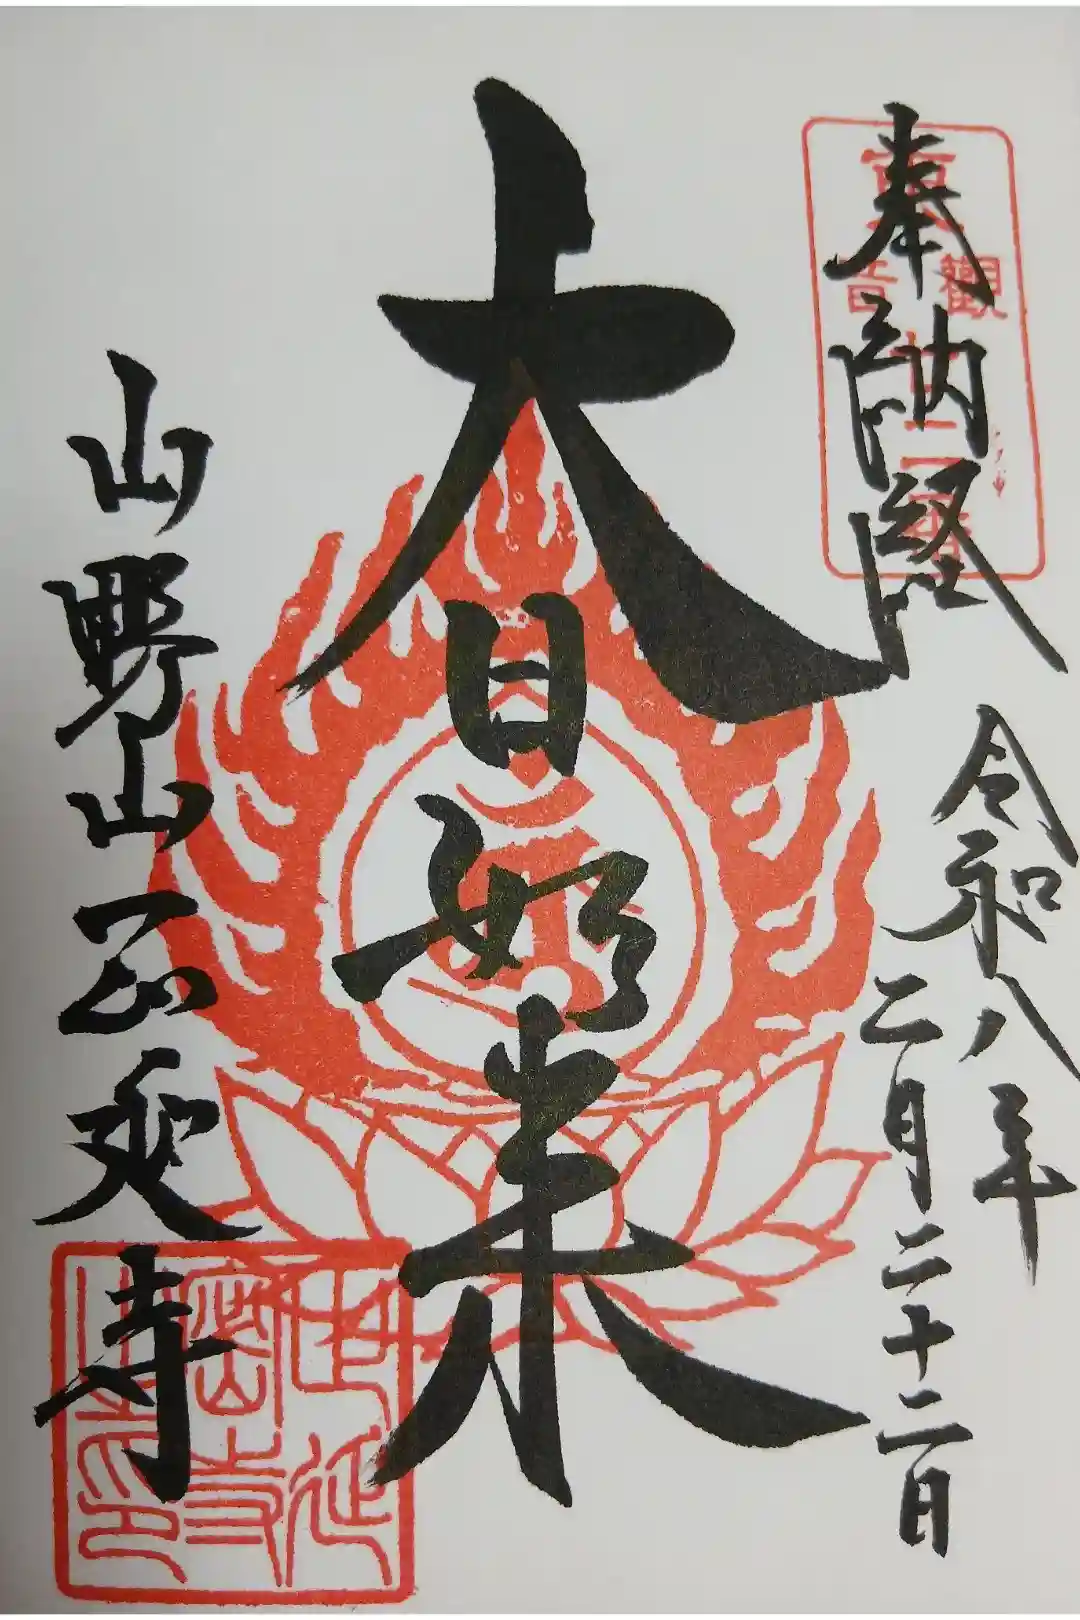 奉納経
令和八年
二月二十二日
大日如来
山野山正延寺
觀音